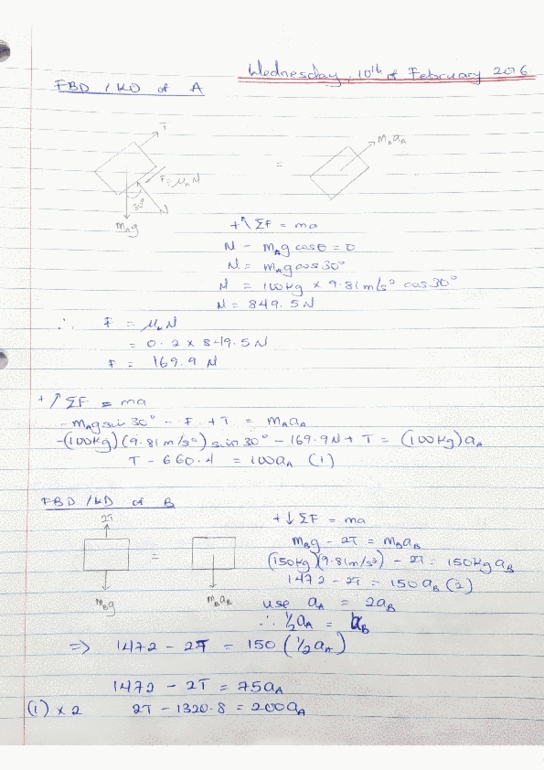 Wednesday, 10th of February 2016
FBD / KD of A
T
F = μₖN
30°
N
m_A g
=
m_A a_A
+↖ ΣF = ma
N - m_A g cosθ = 0
N = m_A g cos 30°
N = 100kg × 9.81 m/s² cos 30°
N = 849.5N
∴ F = μₖN
= 0.2 × 849.5N
F = 169.9 N
+↗ ΣF = ma
-m_A g sin 30° - F + T = m_A a_A
-(100kg)(9.81 m/s²) sin 30° - 169.9N + T = (100kg)a_A
T - 660.4 = 100a_A (1)
FBD / KD of B
2T
=
m_B g
m_B a_B
+↓ ΣF = ma
m_B g - 2T = m_B a_B
(150kg)(9.81m/s²) - 2T = 150kg a_B
1472 - 2T = 150 a_B (2)
use a_A = 2a_B
∴ ½a_A = a_B
=> 1472 - 2T = 150 (½a_A)
1472 - 2T = 75a_A
(1) × 2 2T - 1320.8 = 200a_A